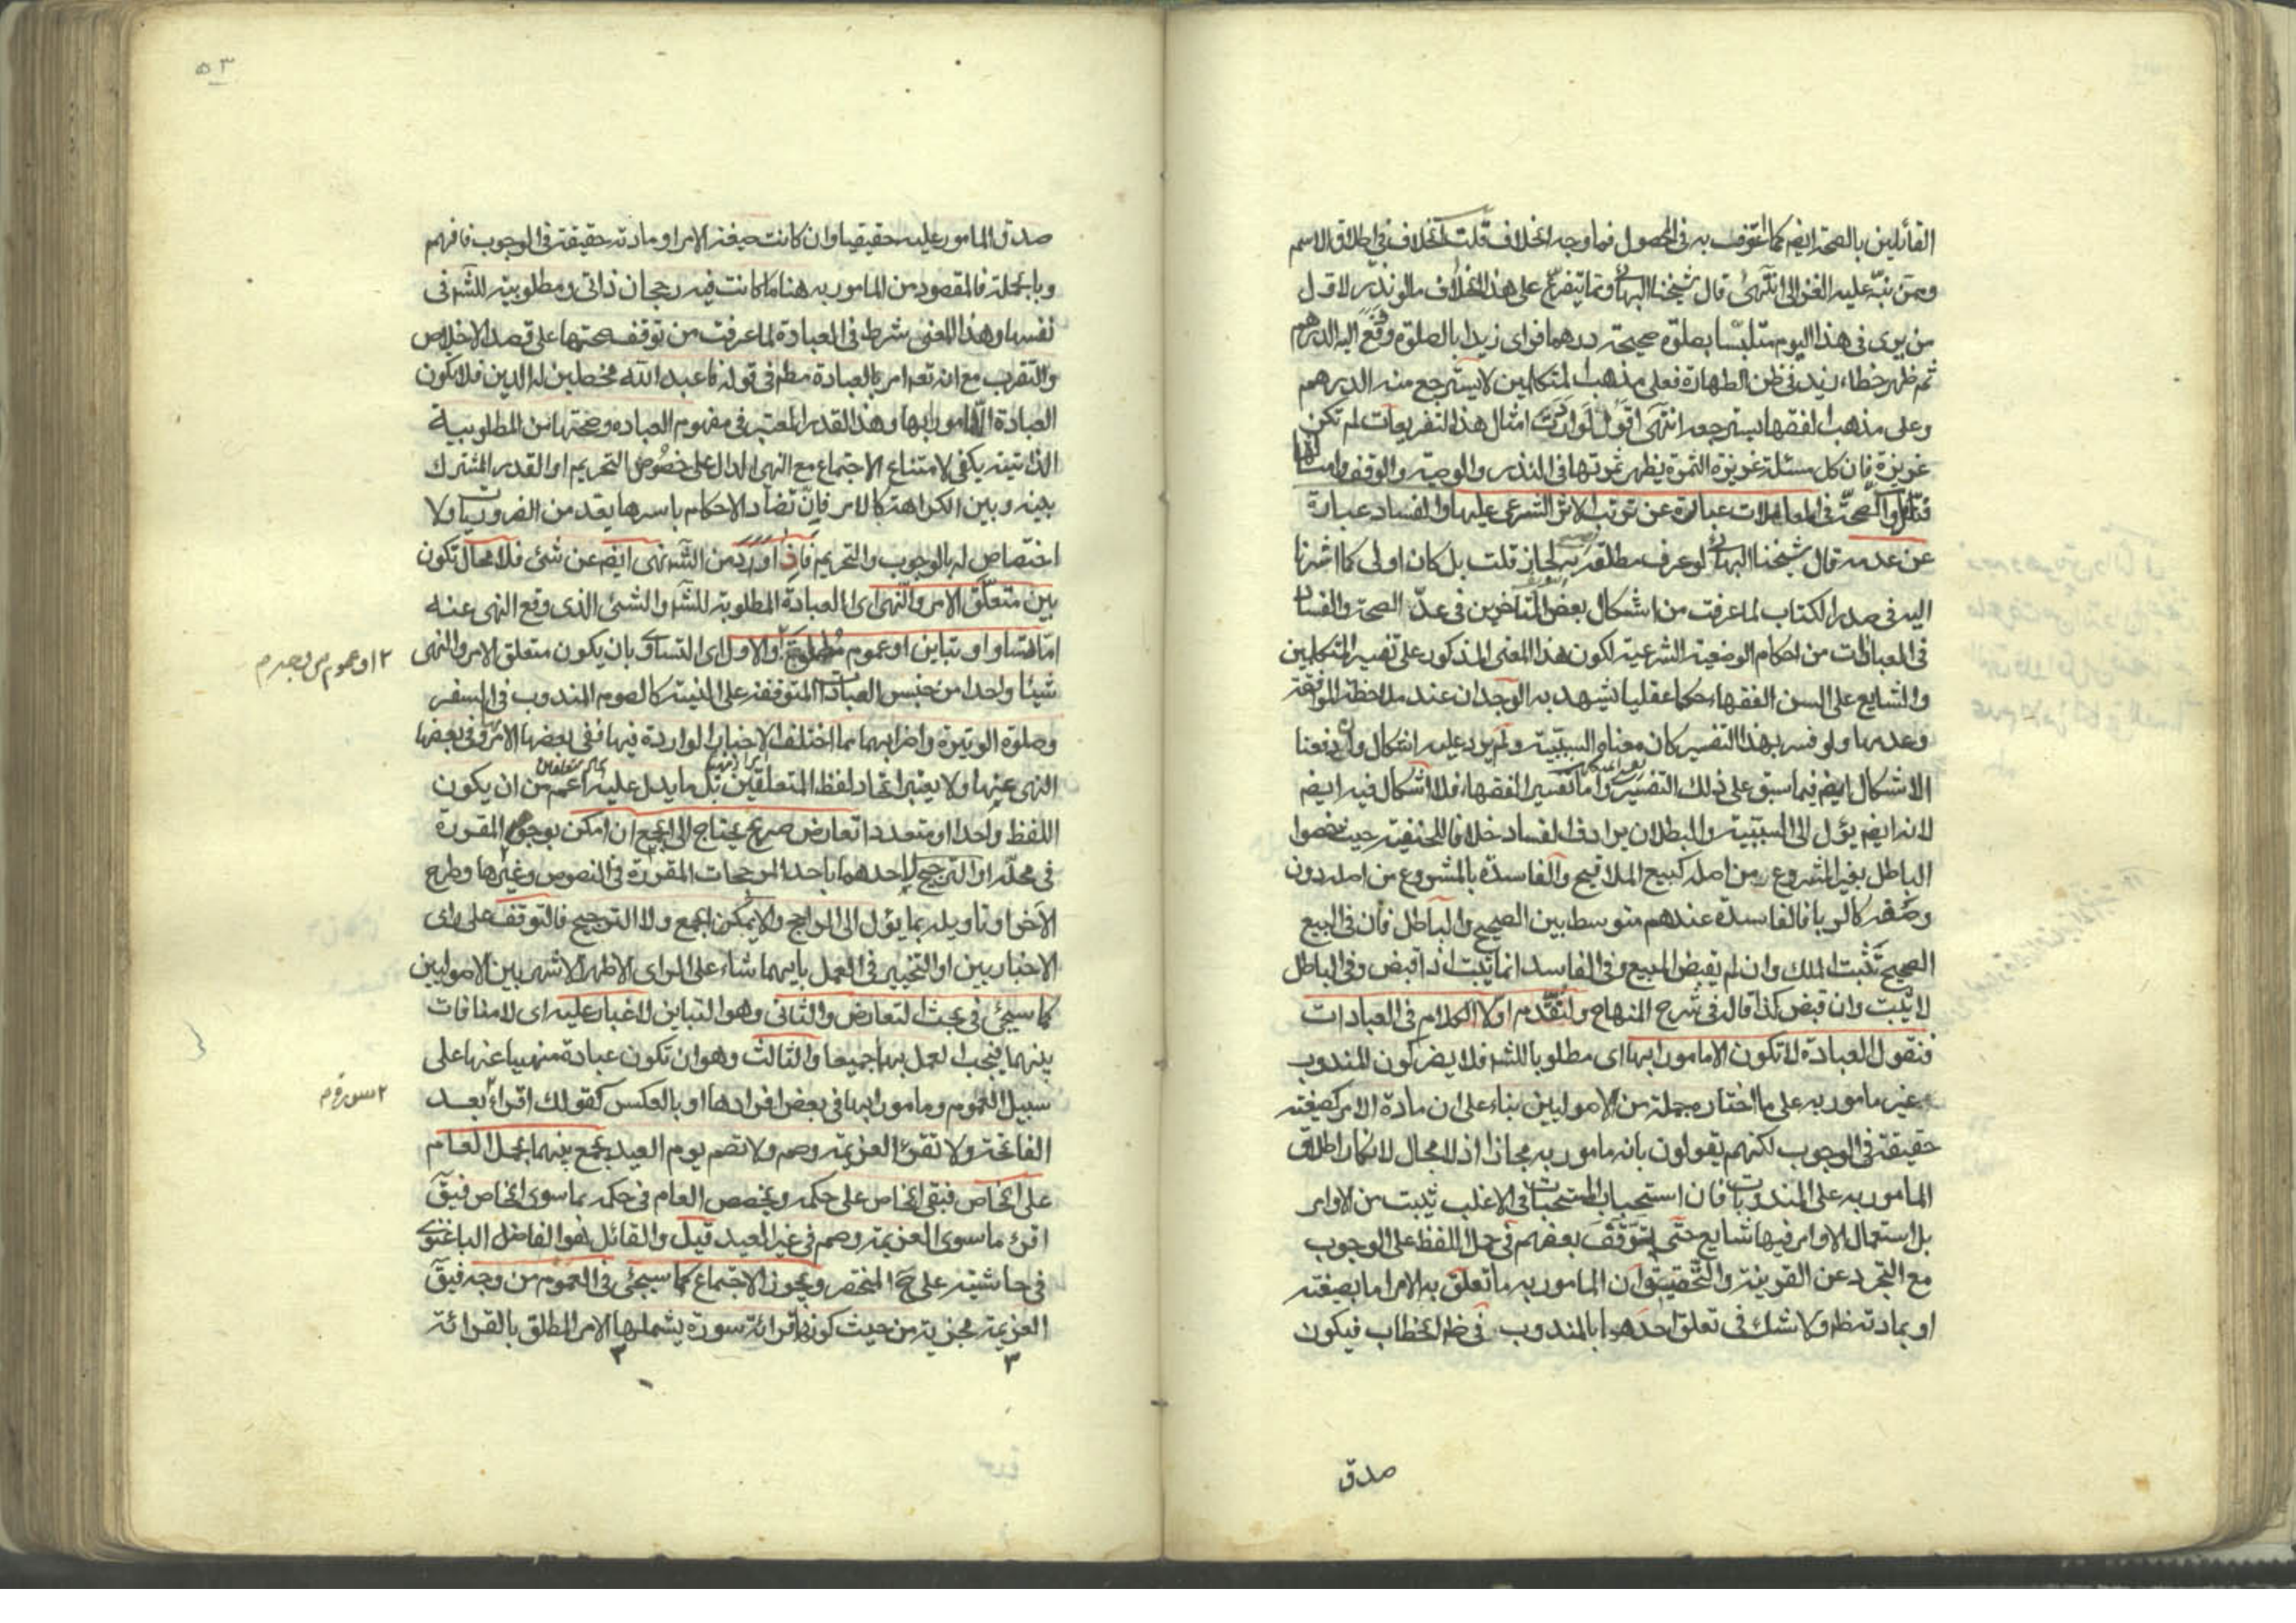 القائلين بالصحة ايضم كما اعترف به فى المحصول فما وجه الخلاف قلت الخلاف فى اطلاق الاسم
وممن نبّه عليه الغزالى انتهى قال شيخنا البهائى ومما يتفرع على هذا الخلاف ما لو نذر لاول
من يرى فى هذا اليوم متلبسا بصلوة صحيحة درهما فراى زيدا بالصلوة وقع اليه الدرهم
ثم ظهر خطاء زيد فى ظن الطهارة فعلى مذهب المتكلمين لا يسترجع منه الدرهم
وعلى مذهب الفقهاء يسترجعه انتهى اقول لو اردت امثال هذا التفريعات لم تكن
عزيزة فان كل مسئلة عزيزة الثمرة يظهر ثمرتها فى النذر والوصية والوقف وامثالها
فتامل والصحة فى المعاملات عبارة عن ترتب الاثر الشرعى عليها والفساد عبارة
عن عدمه قال شيخنا البهائى لو عرف مطلقه به لجاز قلت بل كان اولى كما اشرنا
اليه فى صدر الكتاب لما عرفت من اشكال بعض المتأخرين فى عدّ الصحة والفساد
فى العبادات من احكام الوضعية الشرعية لكون هذا المعنى المذكور على تفسير المتكلمين
والشايع على السن الفقهاء حكما عقليا يشهد به الوجدان عند ملاحظة الموافقة
وعدمها ولو فسر بهذا التفسير كان معناه السببية ولم يرد عليه اشكال وان دفعنا
الاشكال ايضم فيما سبق على ذلك التفسير واما تفسير الفقهاء فلا اشكال فيه ايضم
لانه ايضم يؤل الى السببية والبطلان يرادف الفساد خلافا للحنفية حيث خصوا
الباطل بغير المشروع من اصله كبيع الملاقيح والفاسدة بالمشروع من اصله دون
وصفه كالربا فالفاسدة عندهم متوسط بين الصحيح والباطل فان فى البيع
الصحيح تثبت الملك وان لم تقبض المبيع وفى الفاسد انما يثبت اذا قبض وفى الباطل
لا يثبت وان قبض كذا قاله فى شرح المنهاج ولنقدم اولا الكلام فى العبادات
فنقول العبادة لا تكون الا مامورا بها اى مطلوبا للشر فلا يضر كون المندوب
غير مامور به على ما اختاره جملة من الاصوليين بناء على ان مادة الامر كصيغته
حقيقة فى الوجوب لكنهم يقولون بانه مامور به مجازا اذ لا مجال لانكار اطلاق
المامور به على المندوبات فان استحباب المستحبات فى الاغلب يثبت من الاوامر
بل استعمال الاوامر فيها شايع حتى يتوقف بعضهم فى حمل اللفظ على الوجوب
مع التجرد عن القرينة والتحقيق ان المامور به ما تعلق به الامر اما بصيغته
او بمادته ظ ولا شك فى تعلق احدهما بالمندوب فى ظ الخطاب فيكون
صدق
٥٣
صدق المامور عليه حقيقيا وان كانت صيغة الامر او مادته حقيقة فى الوجوب فافهم
وبالجملة فالمقصود من المامور به هنا ما كانت فيه رجحان ذاتى ومطلوبية للشر فى
نفسها وهذا المعنى شرط فى العبادة لما عرفت من توقف صحتها على قصد الاخلاص
والتقرب مع انه تعم امر بالعبادة مطم فى قوله فاعبد الله مخلصين له الدين فلا يكون
العبادة الا مامورا بها وهذا القدر المعتبر فى مفهوم العباده وصحتها من المطلوبية
الذاتية يكفى لامتناع الاجتماع مع النهى الدال على خصوص التحريم او القدر المشترك
بينه وبين الكراهة كالامر فان تضاد الاحكام باسرها يعد من الضروريات ولا
اختصاص له بالوجوب والتحريم فاذا ورد من الشر نهى ايضم عن شئ فلا محال تكون
بين متعلق الامر والنهى اى العبادة المطلوبة للشر والشئ الذى وقع النهى عنه
اما تساو او تباين او عموم مطلق والاول اى التساوى بان يكون متعلق الامر والنهى
٢ او عموم من وجه م
شيئا واحدا من جنس العبادات المتوقفة على النية كالصوم المندوب فى السفر
وصلوة الوتيرة واضرابهما مما اختلف الاخبار الواردة فيها ففى بعضها الامر وفى بعضها
النهى عنها ولا يعتبر اتحاد لفظ المتعلقين بل ما يدل عليه اعم من ان يكون
اللفظ واحدا او متعددا تعارض صريح يحتاج الى الجمع ان امكن بوجوه المقررة
فى محله او الترجيح لاحدهما باحد المرجحات المقررة فى النصوص وغيرها وطرح
الآخر او تاويله بما يؤل الى الراجح والا يمكن الجمع ولا الترجيح فالتوقف على راى
الاخباريين او التخيير فى العمل بايهما شاء على الراى الاظهر الاشهر بين الاصوليين
كما سيجئ فى بحث التعارض والثانى وهو التباين لا غبار عليه اى لا منافات
بينهما فيجب العمل بهما جميعا والثالث وهو ان تكون عبادة منهيا عنها على
سبيل العموم ومامورا بها فى بعض افرادها او بالعكس كقولك اقراء بعد
٢ سورة م
الفاتحة ولا تقرئ العزيمة وصم ولا تصم يوم العيد يجمع بينهما بحمل العام
على الخاص فبقى الخاص على حكمه ويخصص العام فى حكمه بما سوى الخاص فيق
اقرئ ما سوى العزيمة وصم فى غير العيد قيل والقائل هو الفاضل الباغنوى
فى حاشيته على ح المختصر ويجوز الاجتماع كما سيجئ فى العموم من وجه فيق
العزيمة مجزية من حيث كونها قرائة سورة يشملها الامر المطلق بالقرائة